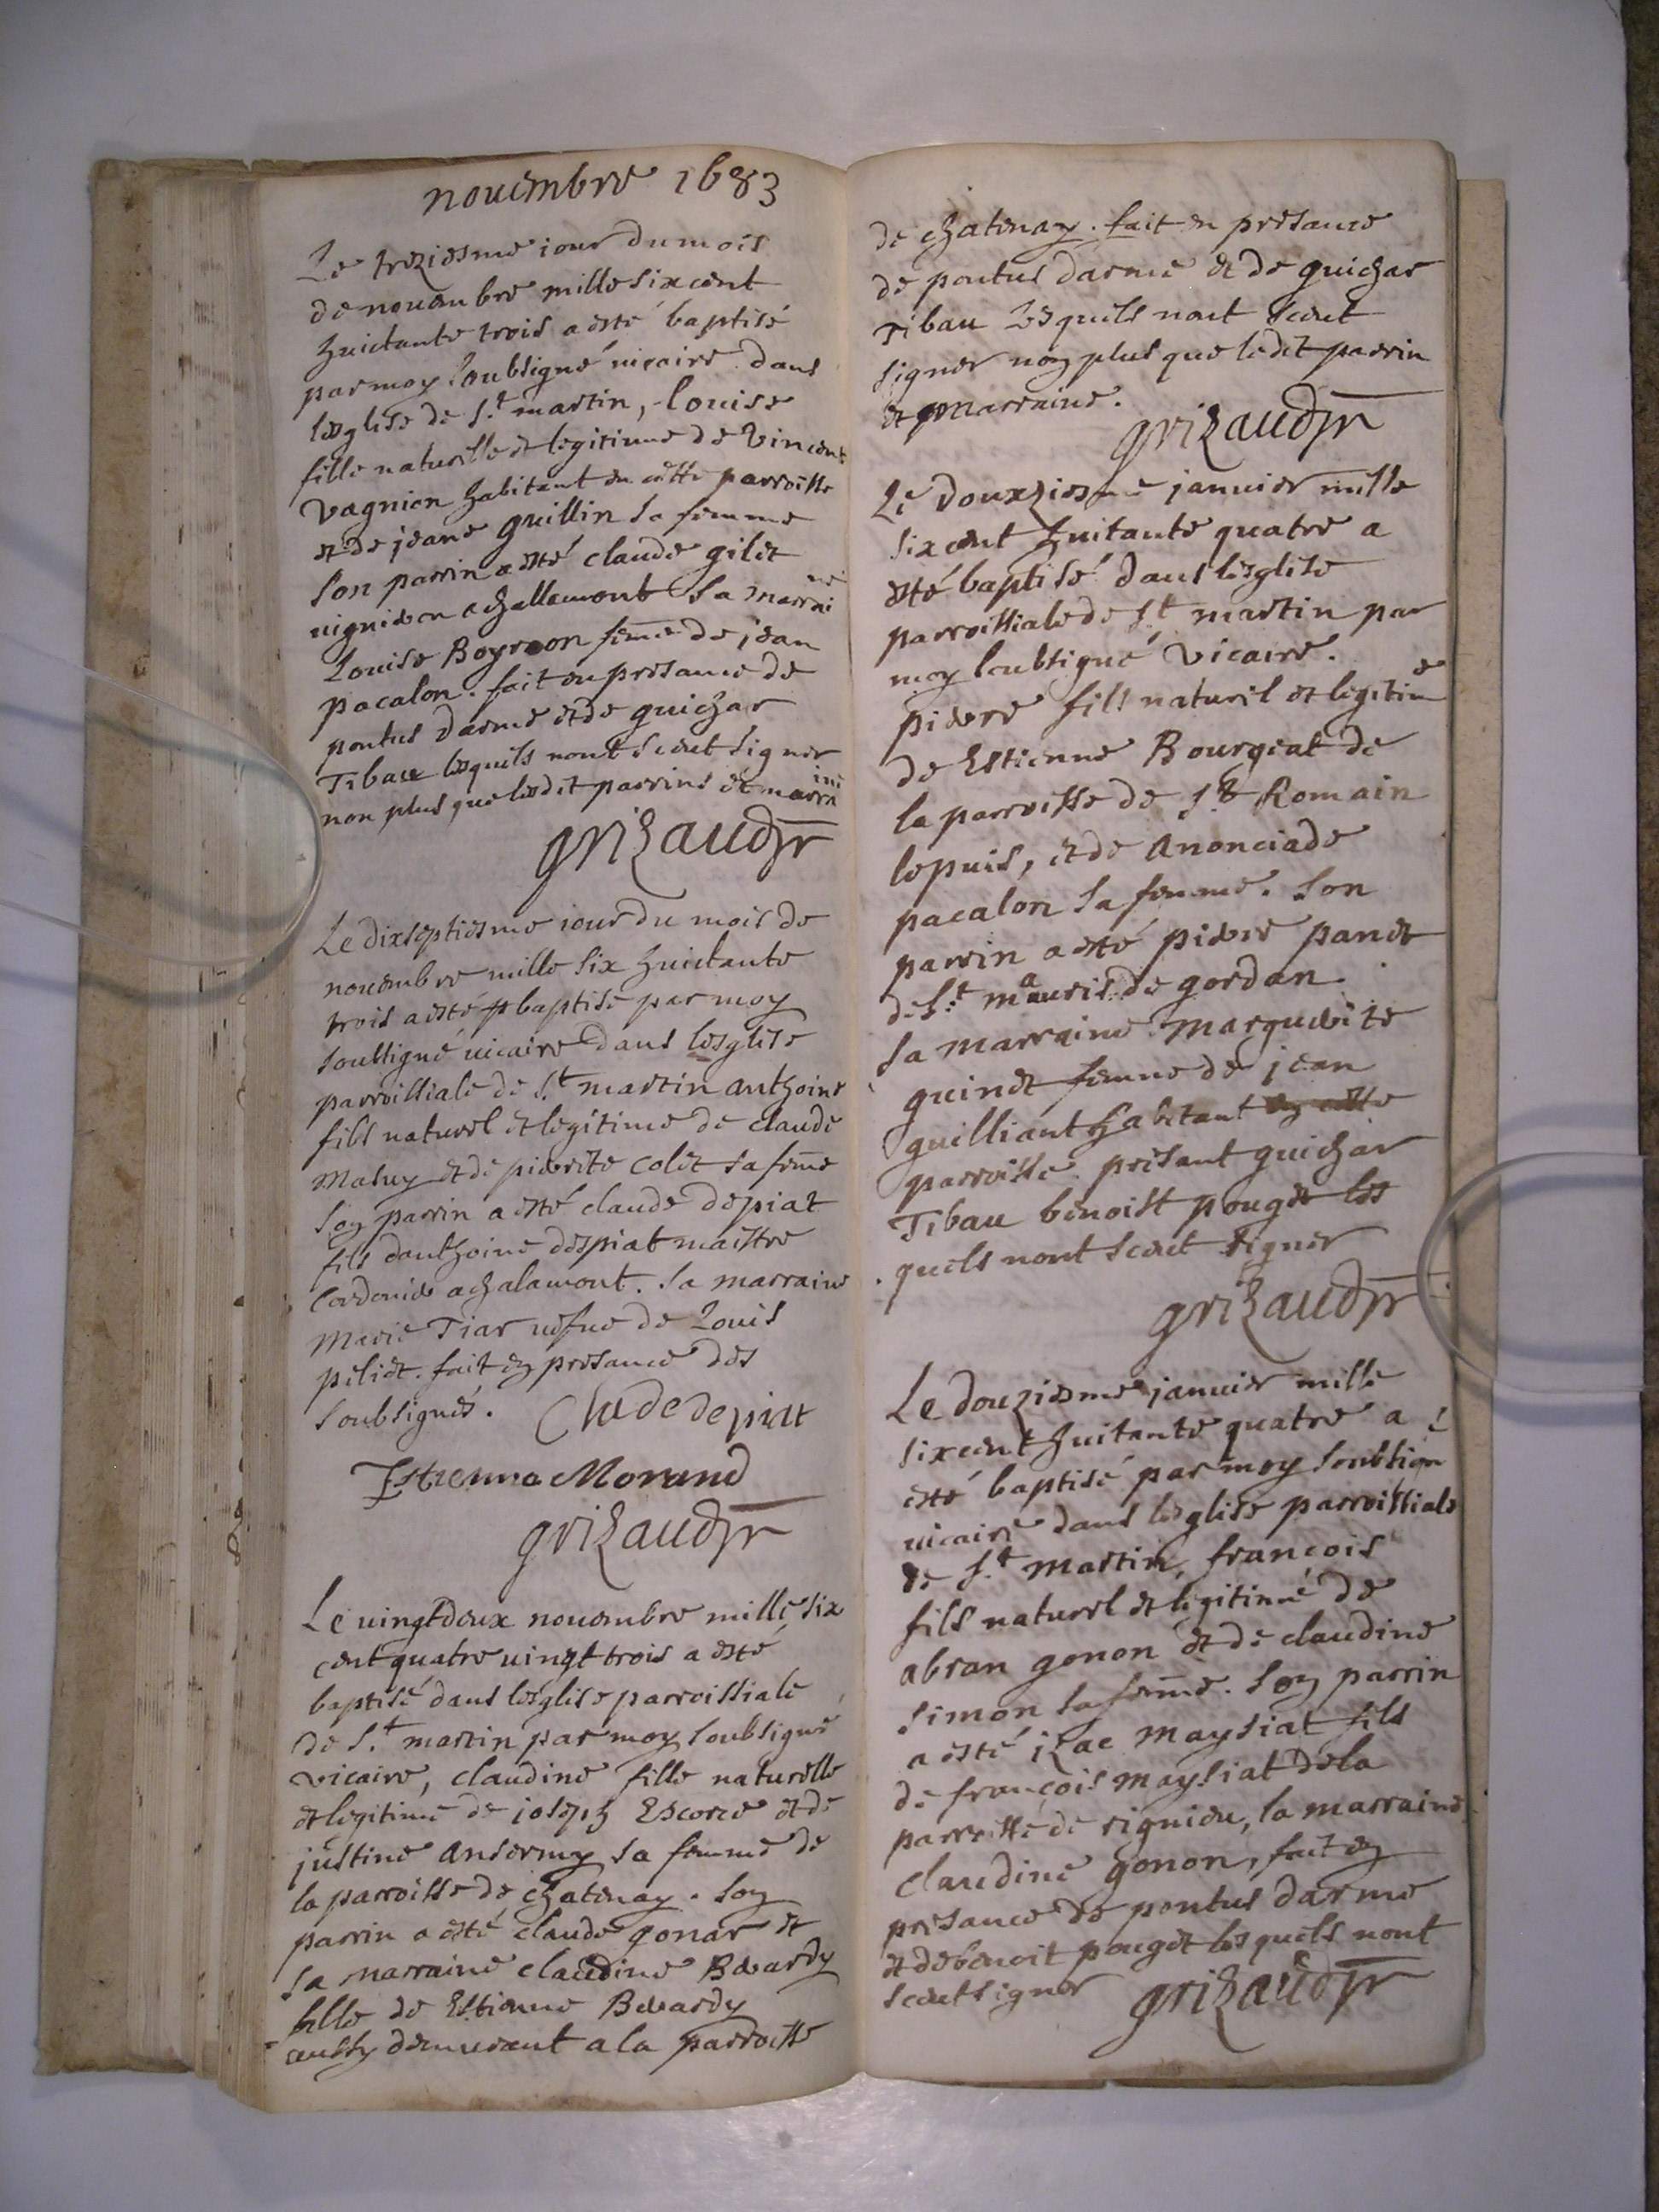 nouembre 1683
Le treziesme iour du mois
de nouembre mille six cent
huictante trois a esté baptisé
par moy soubsigné uicaire dans
lesglise de S.t martin, louise
fille naturelle et legitime de Vincent
Vagnion habitant en cette parroisse
et de jeane guillin sa femme
son parrin a esté claude gilet
uigneron a challemont sa marrai
ne
Louise Boyron feme de jean
pacalon. fait en presance de
pontus darme et de guichar
Tibau lesquels nont sceut signer
non plus que lesdit parrins et marra
ine
grizaud
Le dixseptiesme iour du mois de
nouembre mille six huictante
trois a esté baptise par moy
soubsigné uicaire dans lesglise
parroissiale de S.t martin anthoine
fils naturel et legitime de claude
Mahuy et de pierette colet sa feme
son parrin a esté claude depiat
fils danthoine despiat maistre
Cordonier a chalamont. sa marraine
Marie Tiar uefue de Louis
peliet. fait en presance des
soubsignes.
Clude depiat
Estienne Morand
grizaud
Le uingtdeux nouembre mille six
cent quatre uingt trois a esté
baptisé dans lesglise parroissiale
de S.t martin par moy soubsigné
vicaire, claudine fille naturelle
et legitime de joseph Escorce et de
justine ansermy sa femme de
la parroisse de chatenay. son
parrin a esté claude gonar et
sa marraine claudine Berardy
fille de Estienne Berardy
aussy demurant a la parroisse
de chatenay. fait en presance
de pontus darme et de guichar
Tibau Lesquels nont sceut
signer non plus que ledit parrin
et marraine.
grizaud
Le douxziesme januier mille
six cent huitante quatre a
esté baptisé dans lesglise
parroissiale de S.t martin par
moy soubsigné Vicaire.
pierre fils naturel et legitim
e
de Estienne Bourgeat de
la parroisse de S.t Romain
lepuis, et de Anonciade
pacalon sa femme. son
parrin a esté pierre panet
de S.t mauris de gordan.
sa marraine Marguerite
guinet femme de jean
guilliant habitant en cette
parroisse. presant guichar
Tibau benoist pouget les
quels nont sceut signer
grizaud
Le douziesme januier mille
six cent huitante quatre a
esté baptisé par moy soubsign
é
uicaire dans lesglise parroissiale
de S.t Martin, francois
fils naturel et legitime de
abran gonon et de claudine
simon sa feme. son parrin
a esté izac maysiat fils
de francois maysiat de la
parroisse de rignieu, la marraine
Claudine gonon, fait en
presance de pontus darme
et de benoit pouget lesquels nont
sceut signer
grizaud